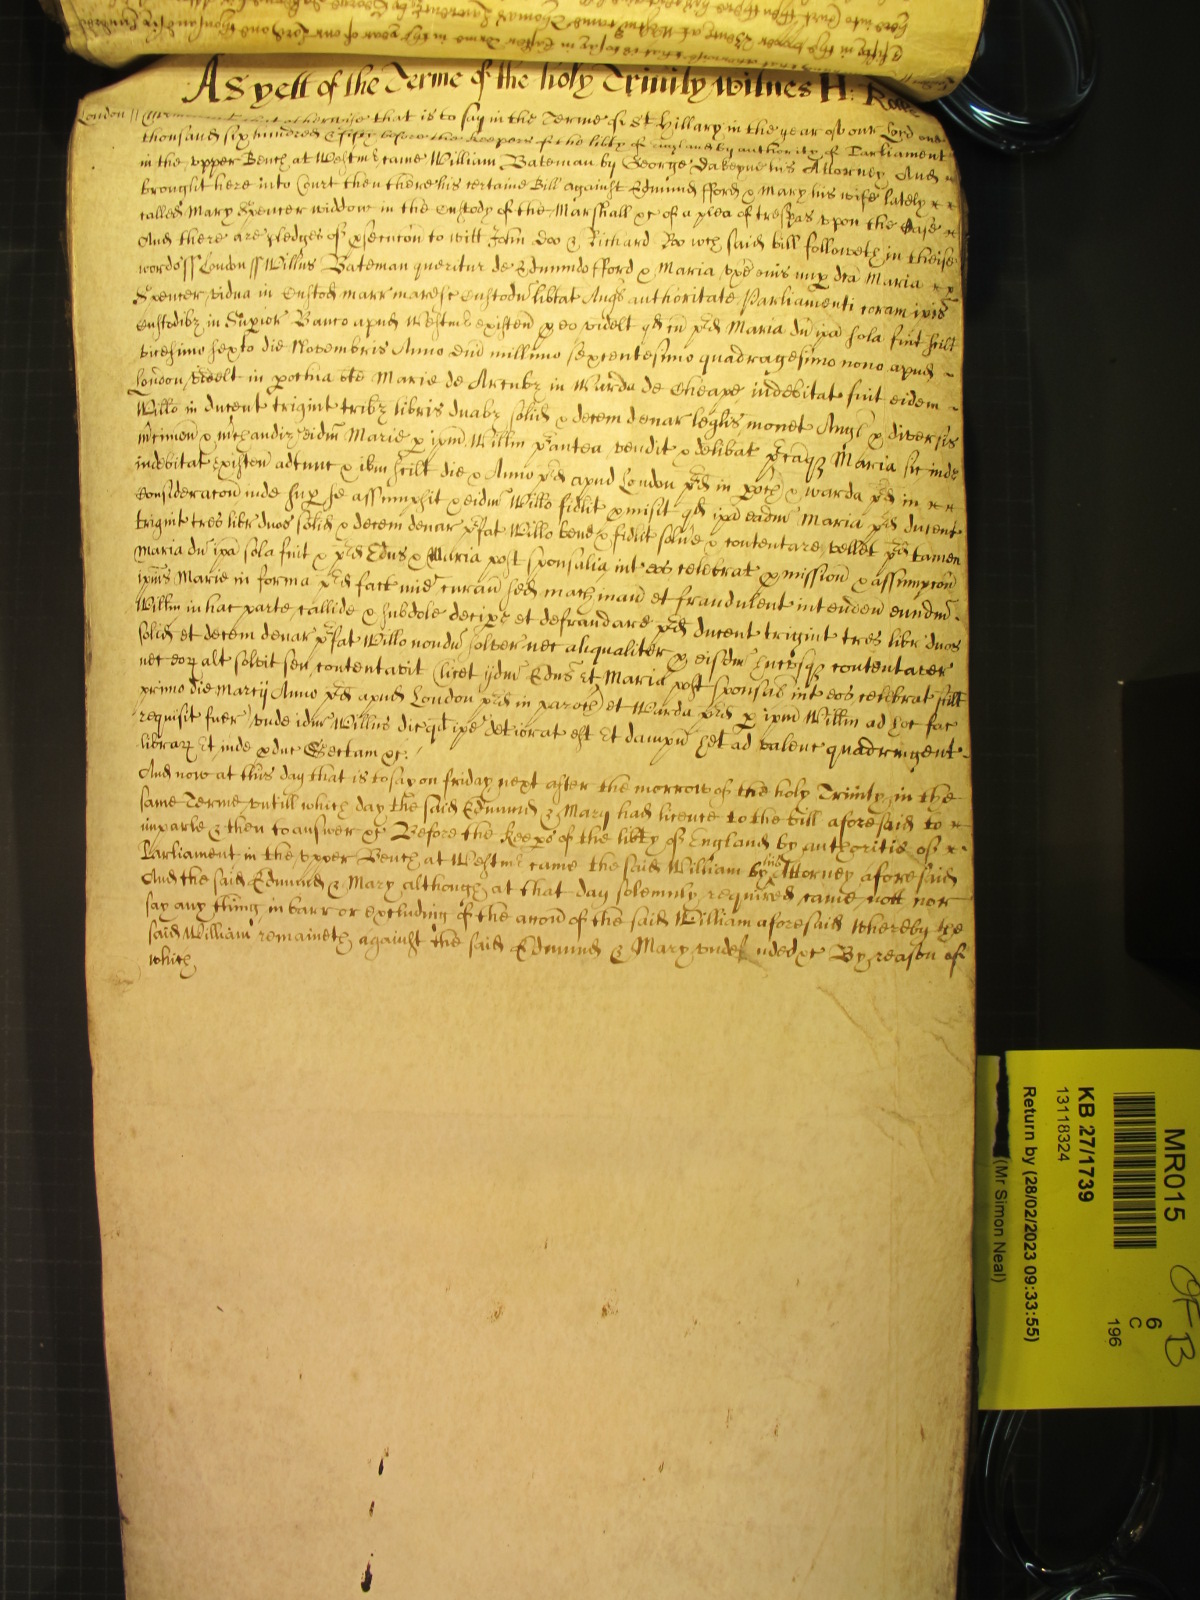 As yett of the Terme of the holy Trinity witnes H: Rolle
London // that is to say in the Terme of St Hillary in the year of our Lord one
thousand six hundred & fifty before the Keepers of the libty of England by authority of Parliament
in the upper Bench at Westmr came William Bateman by George Dakeyne his Attorney And
brought here into Court then there his certaine Bill against Edmund fford & Mary his wife lately
called Mary Spencer widdow in the Custody of the Marshall &c of a plea of trespas upon the Case
And there are pledges of psecucon to witt John Doo & Richard Roo wch said bill followeth in theise
words ss London ss Willus Bateman queritur de Edmundo fford & Maria uxe eius nup dca Maria
Spencer vidua in Custod marr marese Custodu libtat Angl authoritate Parliamenti coram ipis
Custodibz in Supior Banco apud Westmr existen p eo videlt qd cu pd Maria du ipa sola fuit scilt
vicesimo sexto die Novembris Anno dni millimo sexcentesimo quadragesimo nono apud
London videlt in pochia bte Marie de Arcubz in Warda de Cheape indebitat fuit eidem
Willo in ducent trigint tribz libris duabz solid & decem denar leglis monet Angl p diversis
mcimon & mchandiz eidm Marie p ipm Willm pantea vendit & delibat pcaqz Maria sic inde
indebitat existen adtunc & ibm scilt die & Anno pd apud London pd in poch & warda pd in
consideracon inde sup se assumpsit & eidm Willo fidlit pmisit qd ipa eadm Maria pd ducent
trigint tres libr duos solid & decem denar pfat Willo bene & fidlit solve & contentare vellet pd tamen
Maria du ipa sola fuit & pd Edus & Maria post sponsalia int eos celebrat pmission & assumpcon
ipius Marie in forma pd fact mie curan sed machinan et fraudulent intenden eundm
Willm in hac parte callide & subdole decipe et defraudare pd ducent trigint tres libr duos
solid et decem denar pfat Willo nondu solver nec aliqualiter p eisdm hucusqz contentaver
nec eor alt solvit seu contentavit (licet ijdm Edus et Maria post sponsal int eos celebrat scilt
primo die Marcij Anno pd apud London pd in paroch et Warda pd p ipm Willm ad hoc fac
requisit fuer unde idm Willus dic qd ipe deteriorat est Et dampn het ad valenc quadringent
librar Et inde pduc Sectam &c:
And now at this day that is to say on friday next after the morrow of the holy Trinity in the
same Terme untill which day the said Edmund & Mary had licence to the bill aforesaid to
imparle & then to answer &c Before the Keeps of the libty of England by authoritie of
Parliament in the upper Bench at Westmr came the said William by his Attorney aforesaid
And the said Edmund & Mary although at that day solemnly required came nott nor
say any thing in barr or excluding of the accon of the said William aforesaid whereby the
said William remaineth against the said Edmund & Mary undefended &c By reason of
which
MR015
KB 27/1739
13118324
Return by (28/02/2023 09:33:55)
(Mr Simon Neal)
6
C
196
OF B